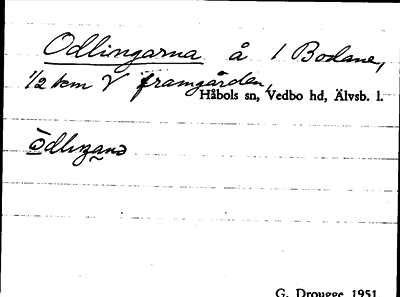 Odlingarna å 1 Bodane,
1/2 km V framgården,
Håbols sn, Vedbo hd, Älvsb. l.
G. Drougge 1951